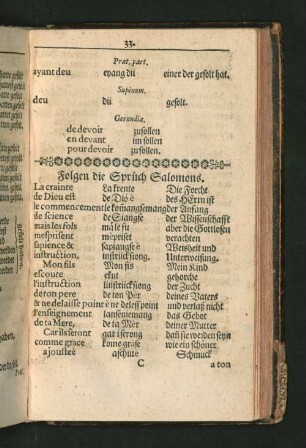 33.
Præt. part.
ayant deu eyang dü einer der gesolt hat.
Supinum.
deu dü gesolt.
Gerundia.
de devoir zu sollen
en devant im sollen
pour devoir zu sollen.
Folgen die Sprüch Salomons.
La crainte La krente Die Forcht
de Dieu est de Diö è des HErrn ist
le commencement le komangsemang der Anfang
de science de Siangse der Wissenschafft
mais les fols mä le fu aber die Gottlosen
mesprisent meprise verachten
sapience & sapiangse è Weisheit und
instruction, instrücksiong. Unterweisung.
Mon fils Mon fis Mein Kind
escoute ekut gehorche
l'instruction linstrücksiong der Zucht
de ton pere de ton Per deines Vaters
& ne delaisse point è ne deless point und verlaß nicht
l'enseignement lansenjemang das Gebot
de ta Mere, de ta Mèr deiner Mutter
Car ils seront kar i serong dañ sie werden seyn
comme grace kome grase wie ein schöner
ajousteè aschute Schmuck
C a ton